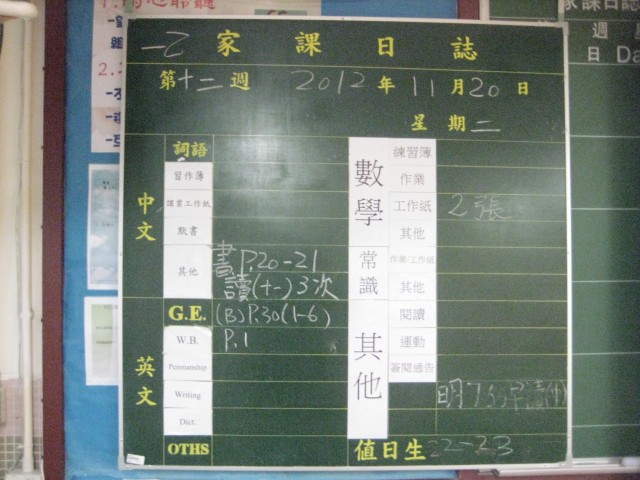 一乙 家課日誌
第十二週 2012年 11月20日
星期二
中文
詞語
習作簿
課業工作紙
默書
其他
書 P.20-21
讀(十一)3次
英文
G.E. (B) P.30(1-6)
W.B. P.1
Penmanship
Writing
Dict.
OTHS
數學
練習簿
作業
工作紙 2張
其他
常識
作業/工作紙
其他
其他
閱讀
運動
簽閱通告
值日生 22-23
家課日誌
週
日 Da
2.